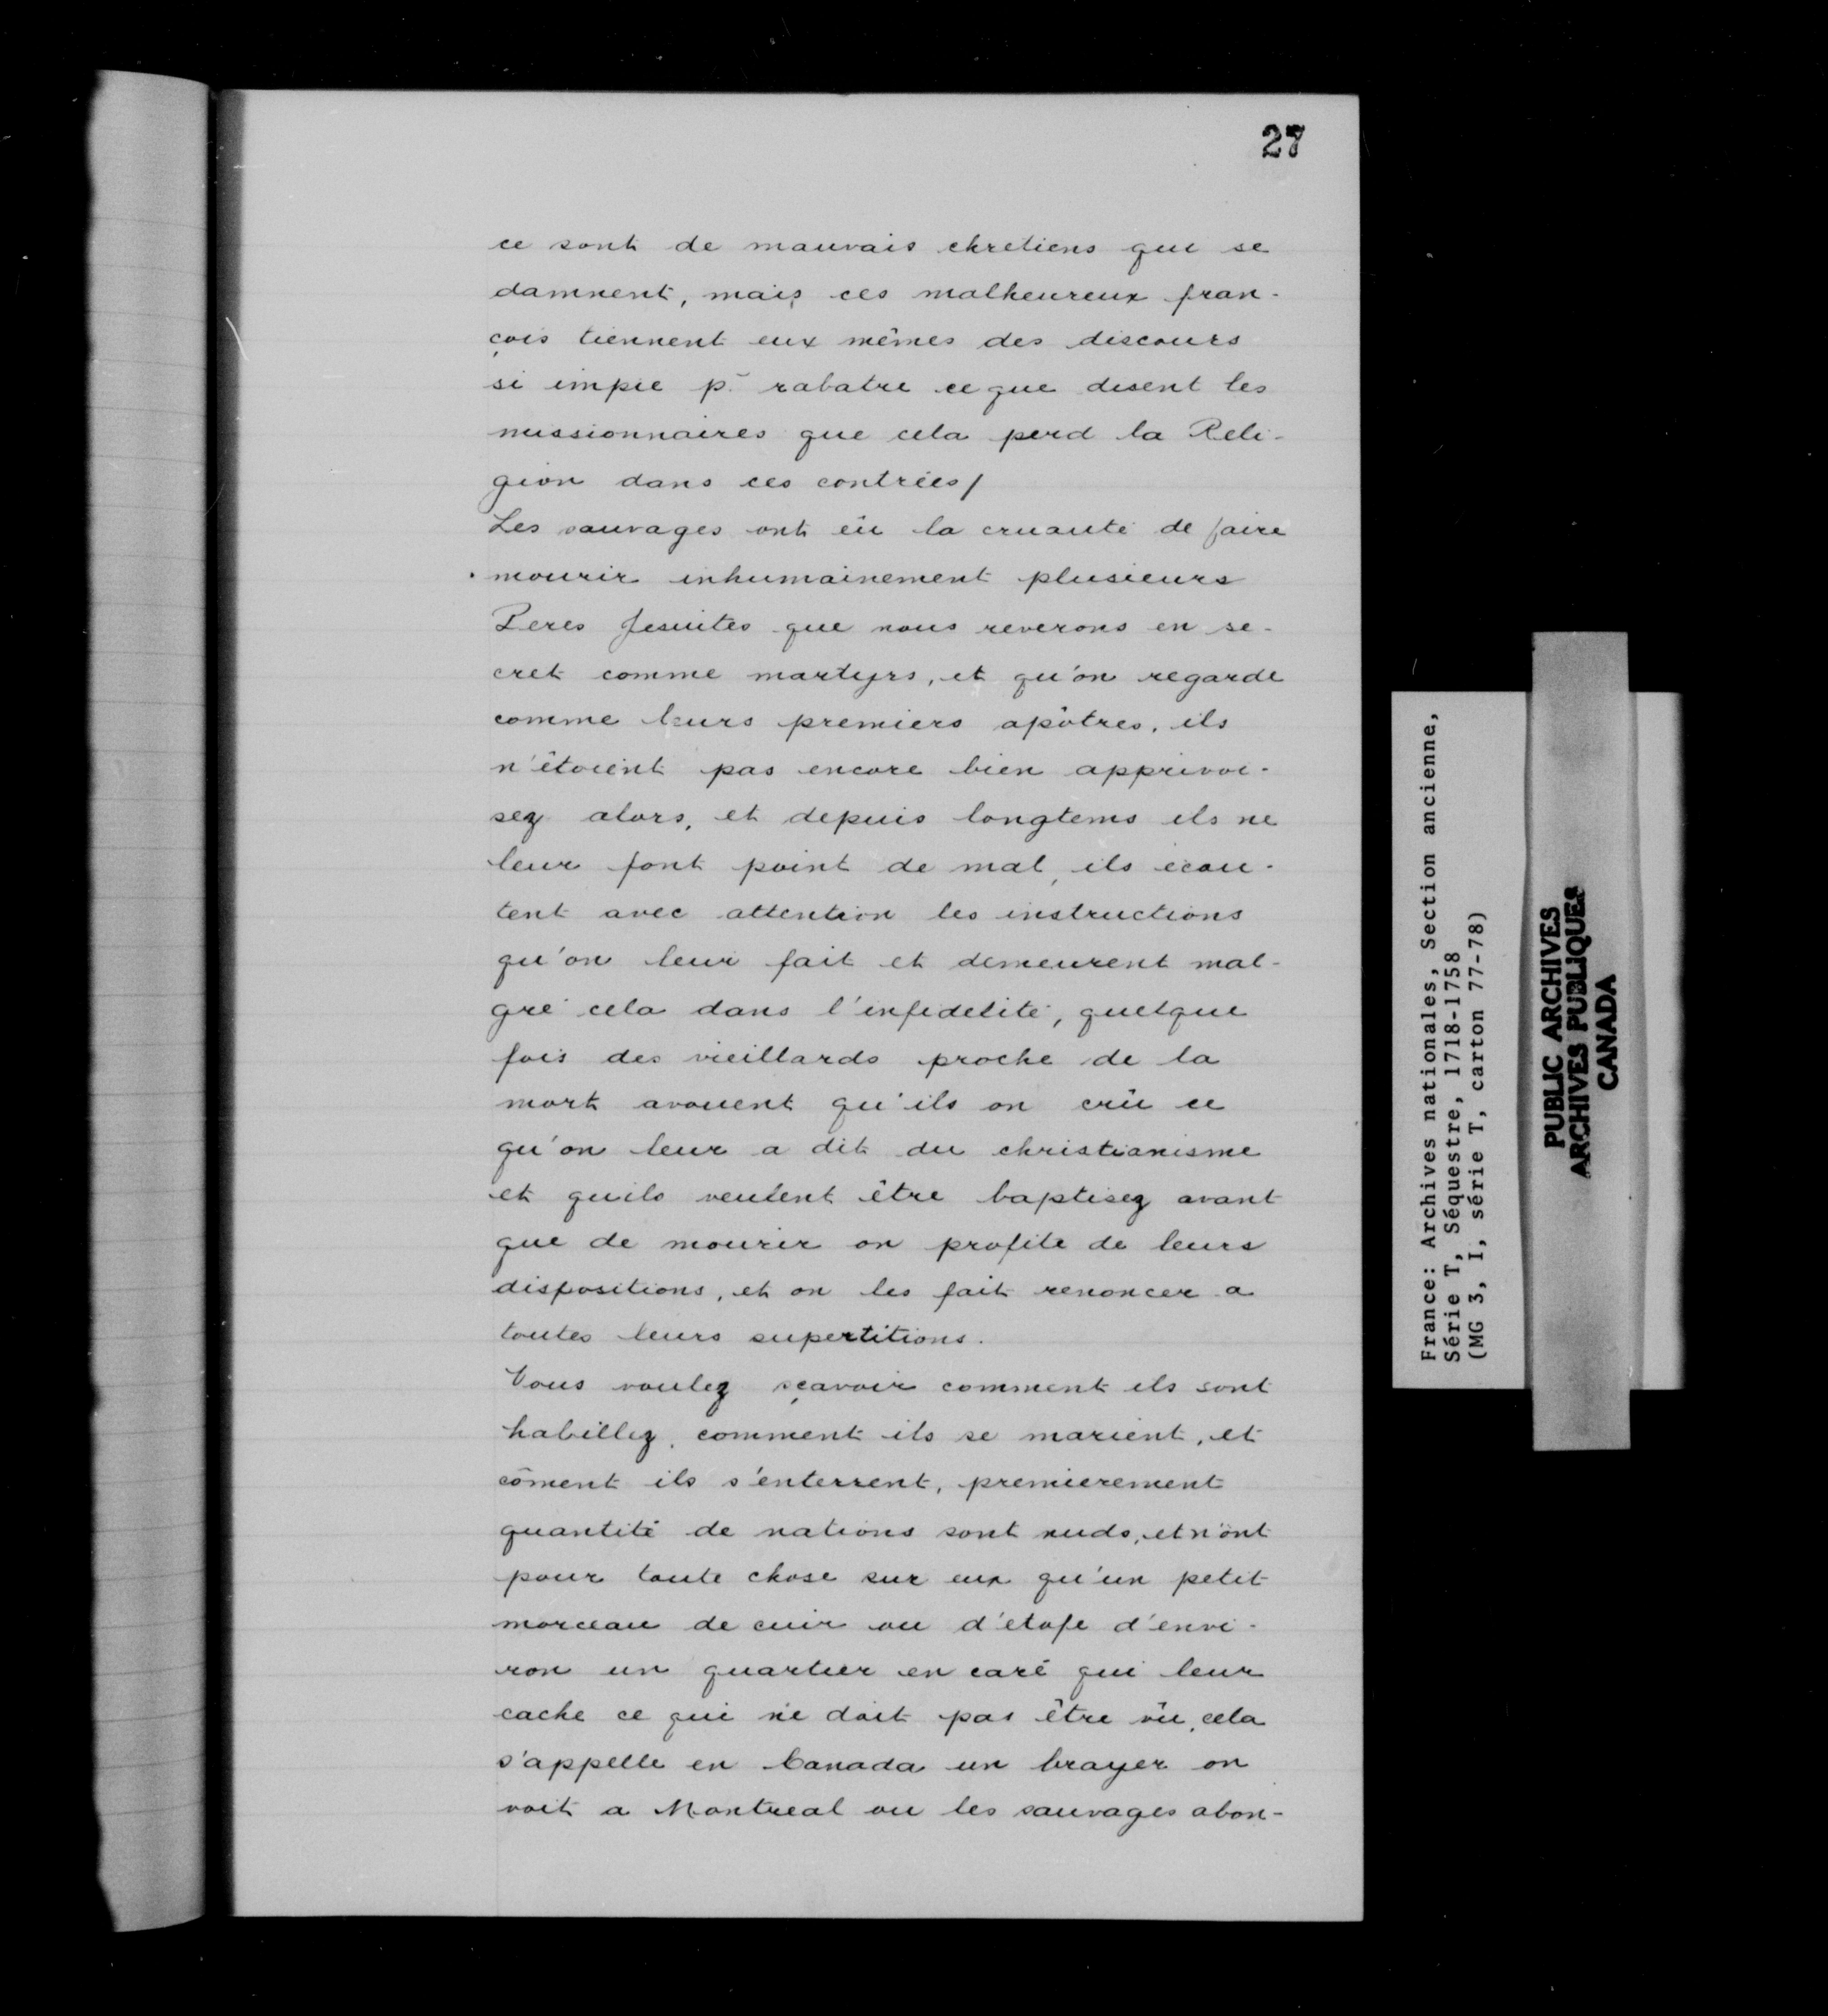 27
ce sont de mauvais chretiens qui se
damnent, mais ces malheureux fran-
çois tiennent eux mêmes des discours
si impie p.r rabatre ce que disent les
missionnaires que cela perd la Reli-
gion dans ces contrées/
Les sauvages ont eü la cruauté de faire
mourir inhumainement plusieurs
Peres Jesuites que nous reverons en se-
cret comme martyrs, et qu'on regarde
comme leurs premiers apôtres, ils
n'étoient pas encore bien apprivoi-
sez alors, et depuis longtems ils ne
leur font point de mal, ils écou-
tent avec attention les instructions
qu'on leur fait et demeurent mal-
gré cela dans l'infidelité, quelque
fois des vieillards proche de la
mort avouent qu'ils on crü ce
qu'on leur a dit du christianisme
et quils veulent être baptisez avant
que de mourir on profite de leurs
dispositions, et on les fait renoncer a
toutes leurs supertitions.
Vous voulez sçavoir comment ils sont
habillez, comment ils se marient, et
cõment ils s'enterrent, premierement
quantité de nations sont nuds, et n'ont
pour toute chose sur eux qu'un petit
morceau de cuir ou d'etofe d'envi-
ron un quartier en caré qui leur
cache ce qui ne doit pas être vü, cela
s'appelle en Canada un brayer on
voit a Montreal ou les sauvages abon-
France: Archives nationales, Section ancienne,
Série T, Séquestre, 1718-1758
(MG 3, I, série T, carton 77-78)
PUBLIC ARCHIVES
ARCHIVES PUBLIQUES
CANADA